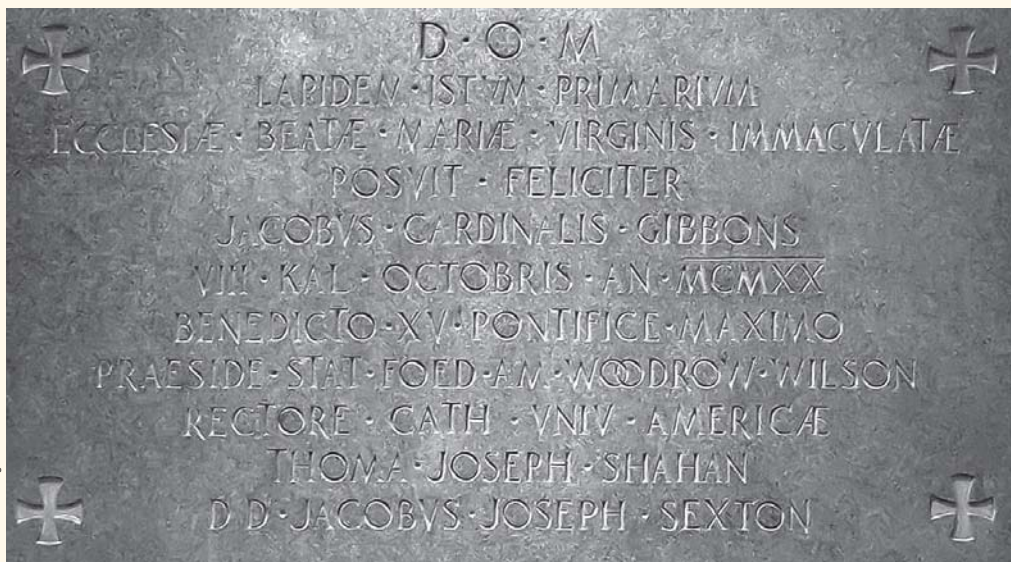 D · O · M
LAPIDEM · ISTVM · PRIMARIVM
ECCLESIÆ · BEATÆ · MARIÆ · VIRGINIS · IMMACVLATÆ
POSVIT · FELICITER
JACOBVS · CARDINALIS · GIBBONS
VIII · KAL · OCTOBRIS · AN · MCMXX
BENEDICTO · XV · PONTIFICE · MAXIMO
PRAESIDE · STAT · FOED · AM · WOODROW · WILSON
RECTORE · CATH · VNIV · AMERICÆ
THOMA · JOSEPH · SHAHAN
D D · JACOBVS · JOSEPH · SEXTON